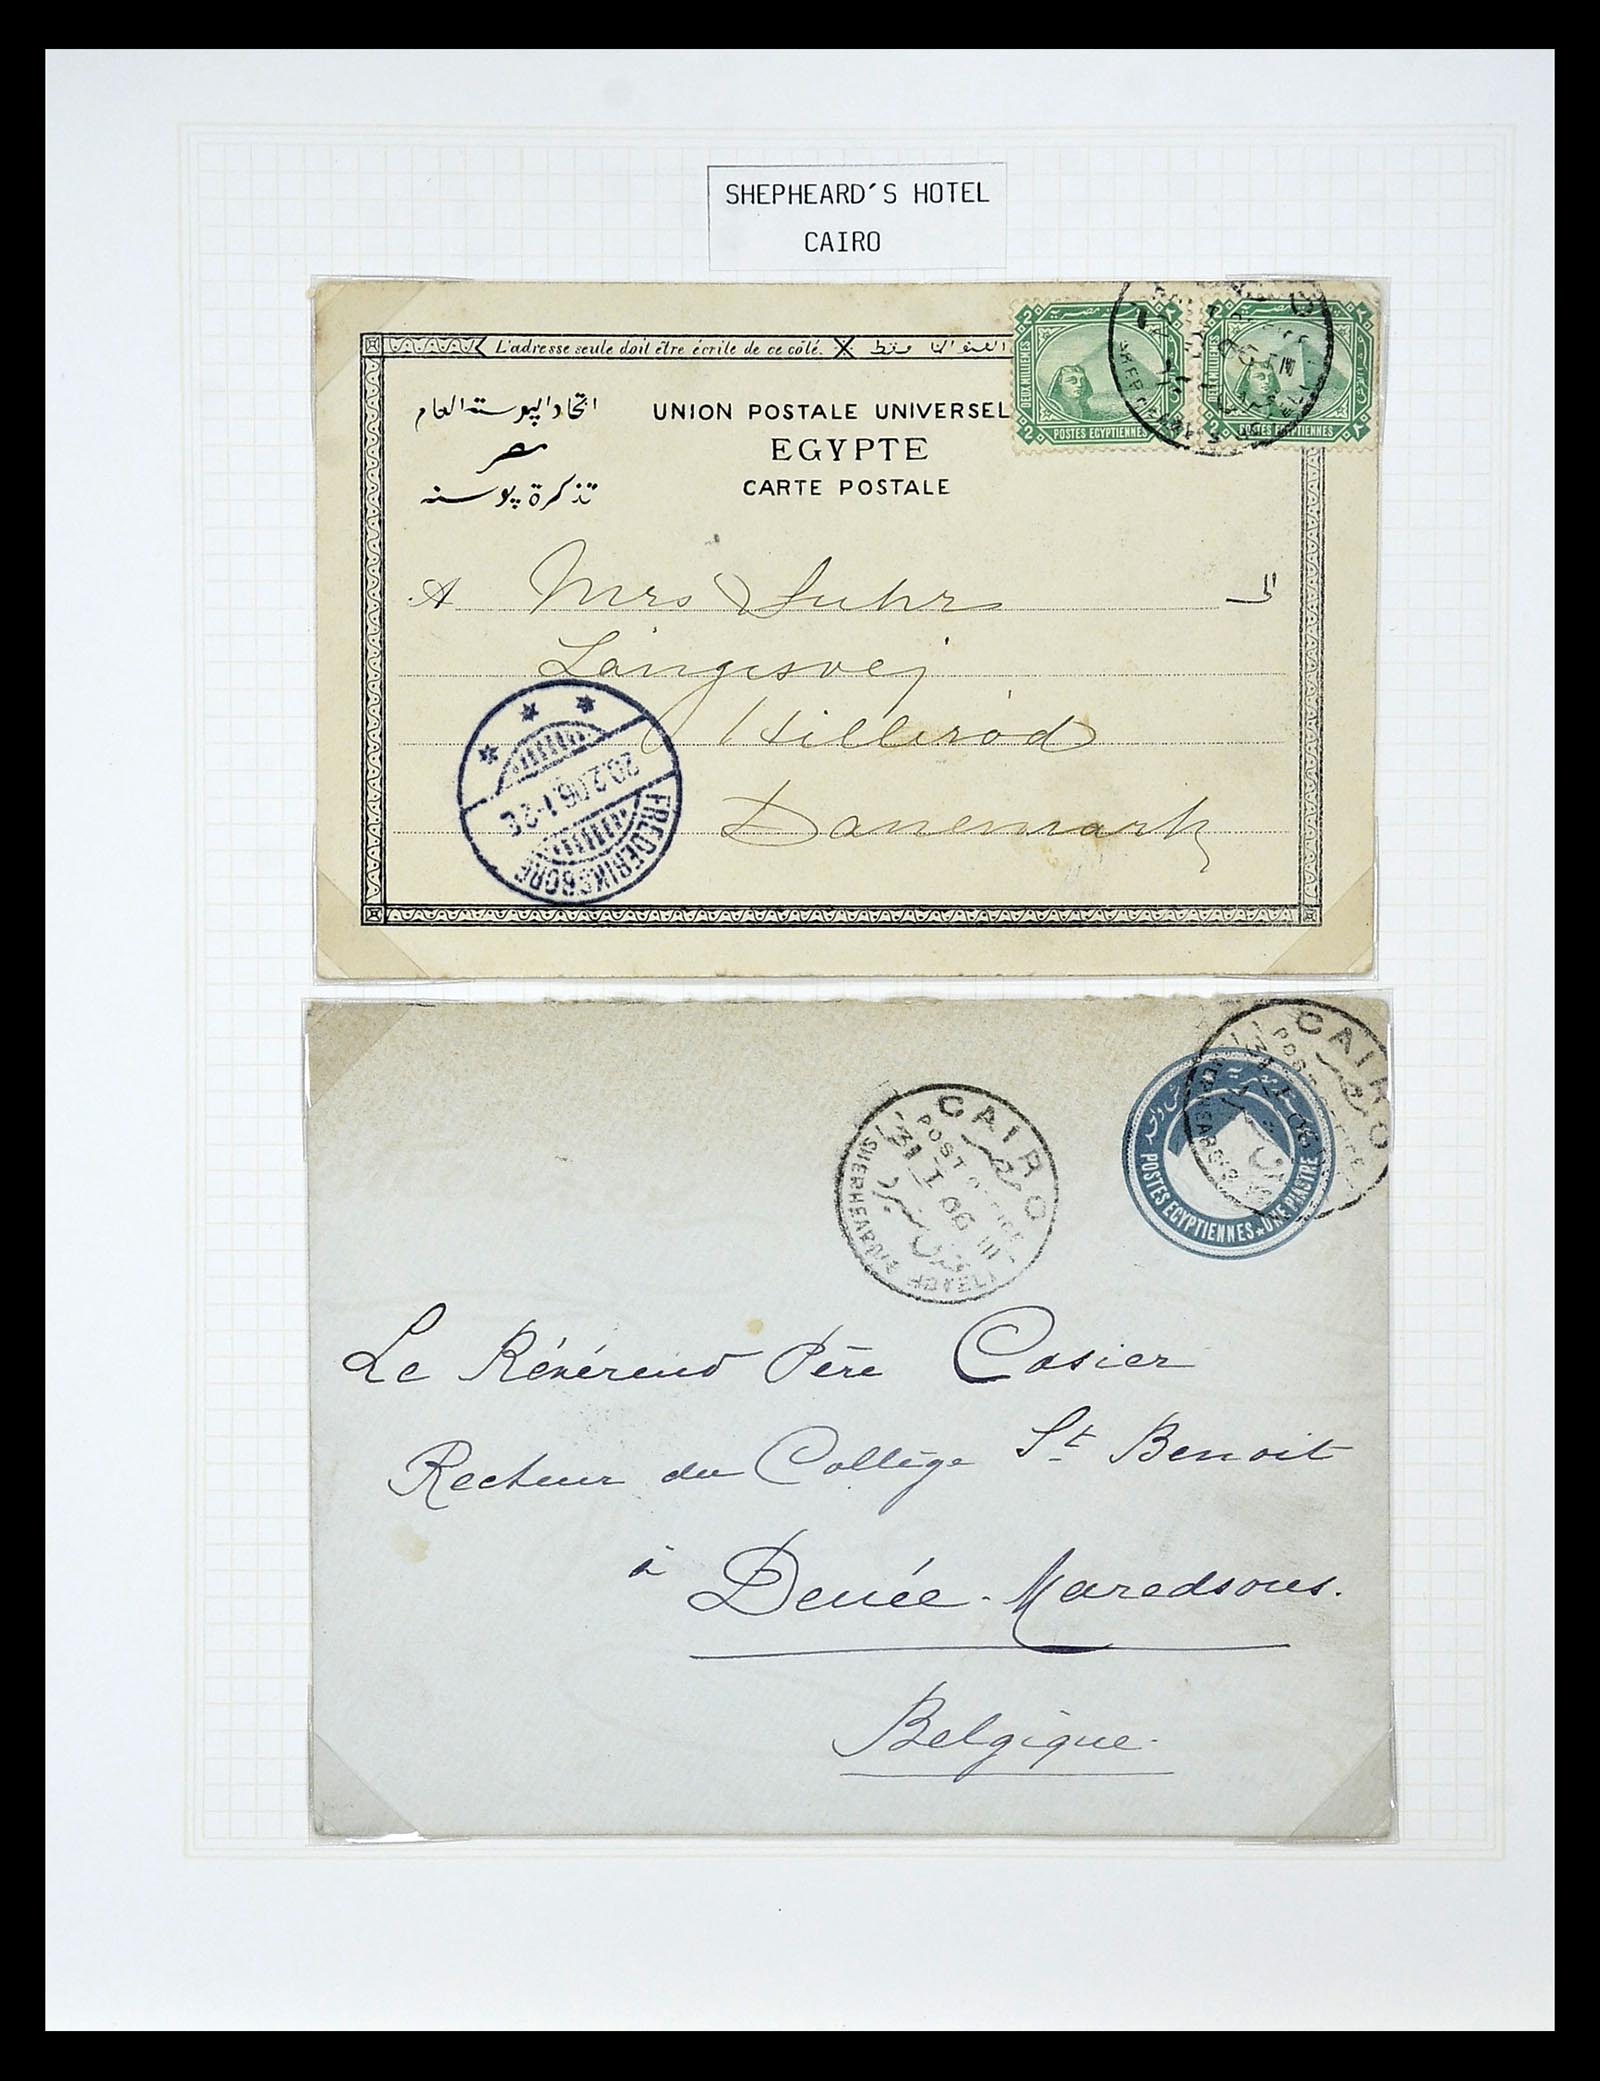 SHEPHEARD'S HOTEL
CAIRO
L'adresse seule doit être écrite de ce côté.
اتحاد البوسته العام
مصر
تذكرة بوسته
UNION POSTALE UNIVERSEL
EGYPTE
CARTE POSTALE
2 DEUX MILLIEMES 2
POSTES EGYPTIENNES
2 DEUX MILLIEMES 2
POSTES EGYPTIENNES
A Mrs Suhr الى
Langesvej
Hilleröd
Danemark
FREDERIKSBORG
20.2.06.1-2E
CAIRO
POST OFFICE
31 I 06 III
SHEPHEARD'S HOTEL
CAIRO
POST OFFICE
POSTES EGYPTIENNES ★ UNE PIASTRE
Le Révérend Père Casier
Recteur du Collège St Benoit
à Denée-Maredsous.
Belgique.